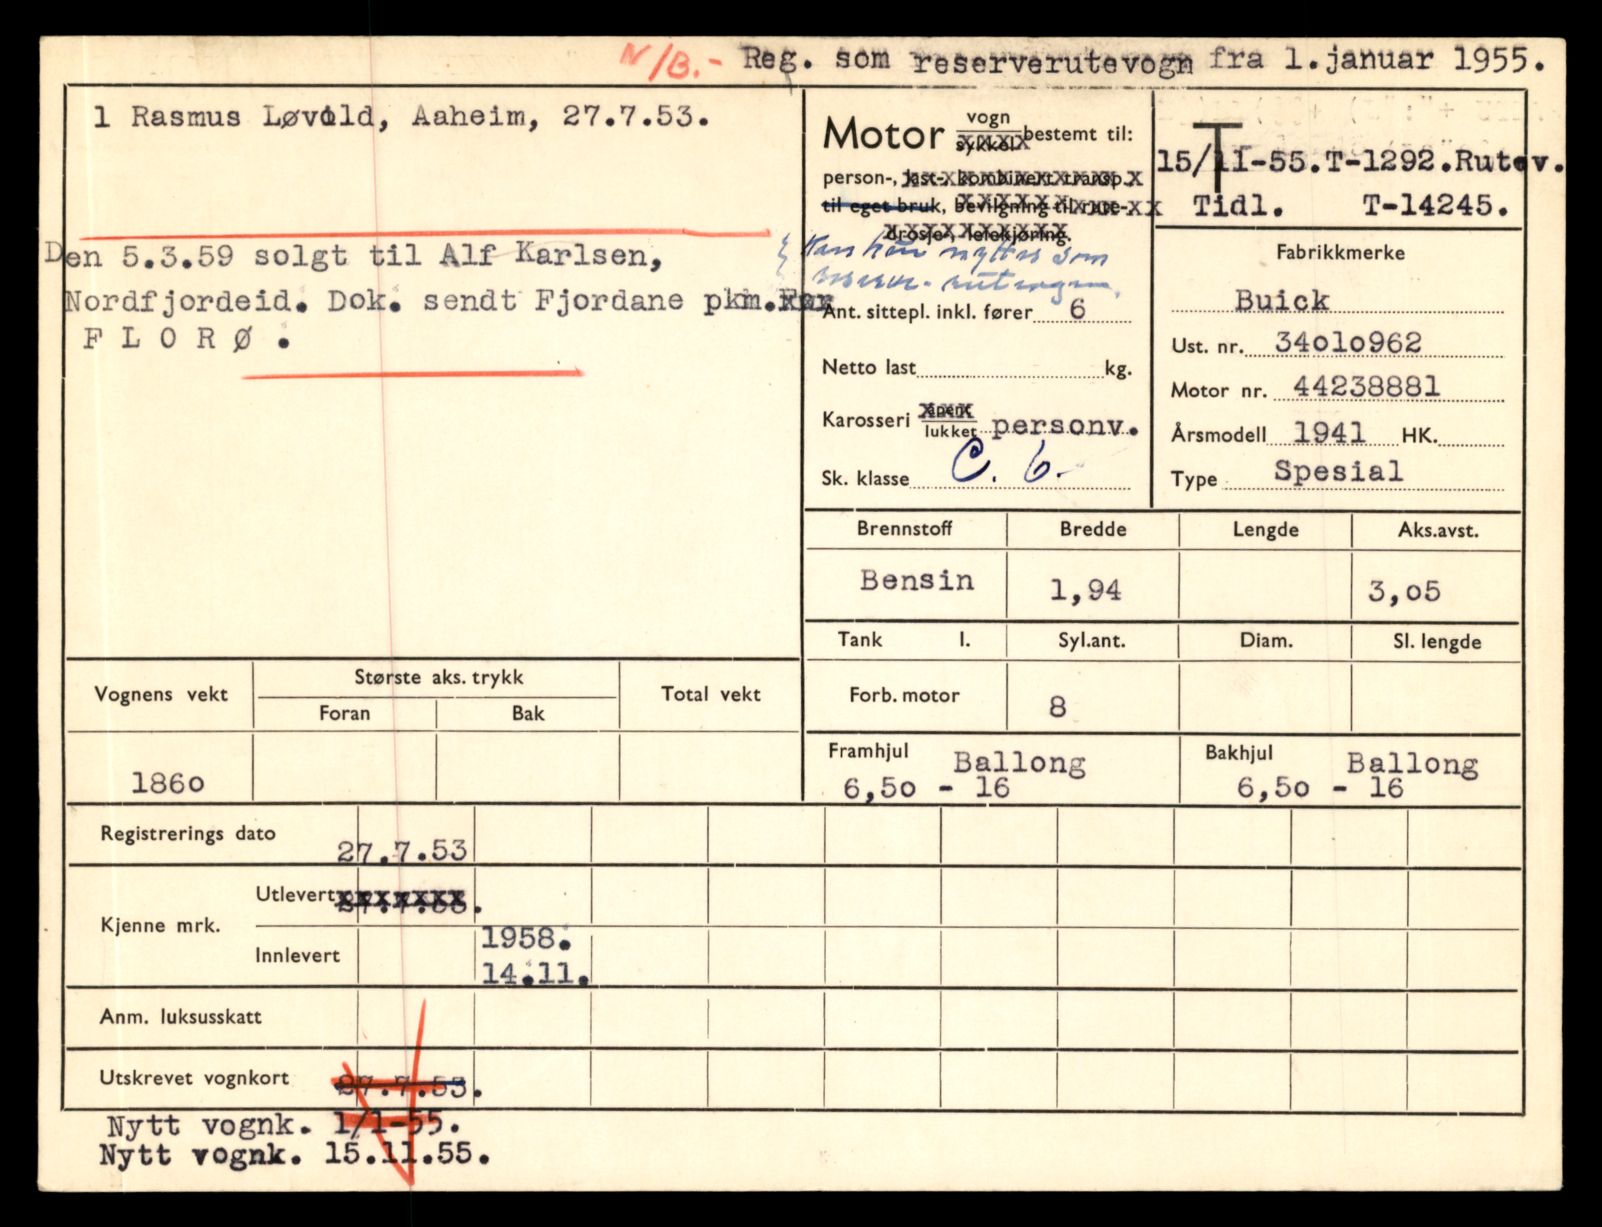 N/B.- Reg. som reserverutevogn fra 1.januar 1955.
1 Rasmus Løvold, Aaheim, 27.7.53.
Den 5.3.59 solgt til Alf Karlsen,
Nordfjordeid. Dok. sendt Fjordane pkm.
F L O R Ø .
Motor vogn sykkel bestemt til:
person-, last-, kombinert transp.
til eget bruk, bevilgning til rute-
drosje-, leiekjøring.
Kan kun nyttes som
reserve-rutevogn.
Ant. sittepl. inkl. fører 6
Netto last kg.
Karosseri åpent lukket personv.
Sk. klasse C. 6.-
T
15/11-55.T-1292.Rutev.
Tidl. T-14245.
Fabrikkmerke
Buick
Ust. nr. 34olo962
Motor nr. 44238881
Årsmodell 1941 HK.
Type Spesial
Brennstoff Bredde Lengde Aks.avst.
Bensin 1,94 3,o5
Tank l. Syl.ant. Diam. Sl. lengde
Forb. motor 8
Framhjul Ballong
6,5o - 16
Bakhjul Ballong
6,5o - 16
Vognens vekt Største aks. trykk Total vekt
Foran Bak
186o
Registrerings dato 27.7.53
Kjenne mrk.
Utlevert 27.7.53.
Innlevert 1958.
14.11.
Anm. luksusskatt
Utskrevet vognkort 27.7.53.
Nytt vognk. 1/1-55.
Nytt vognk. 15.11.55.